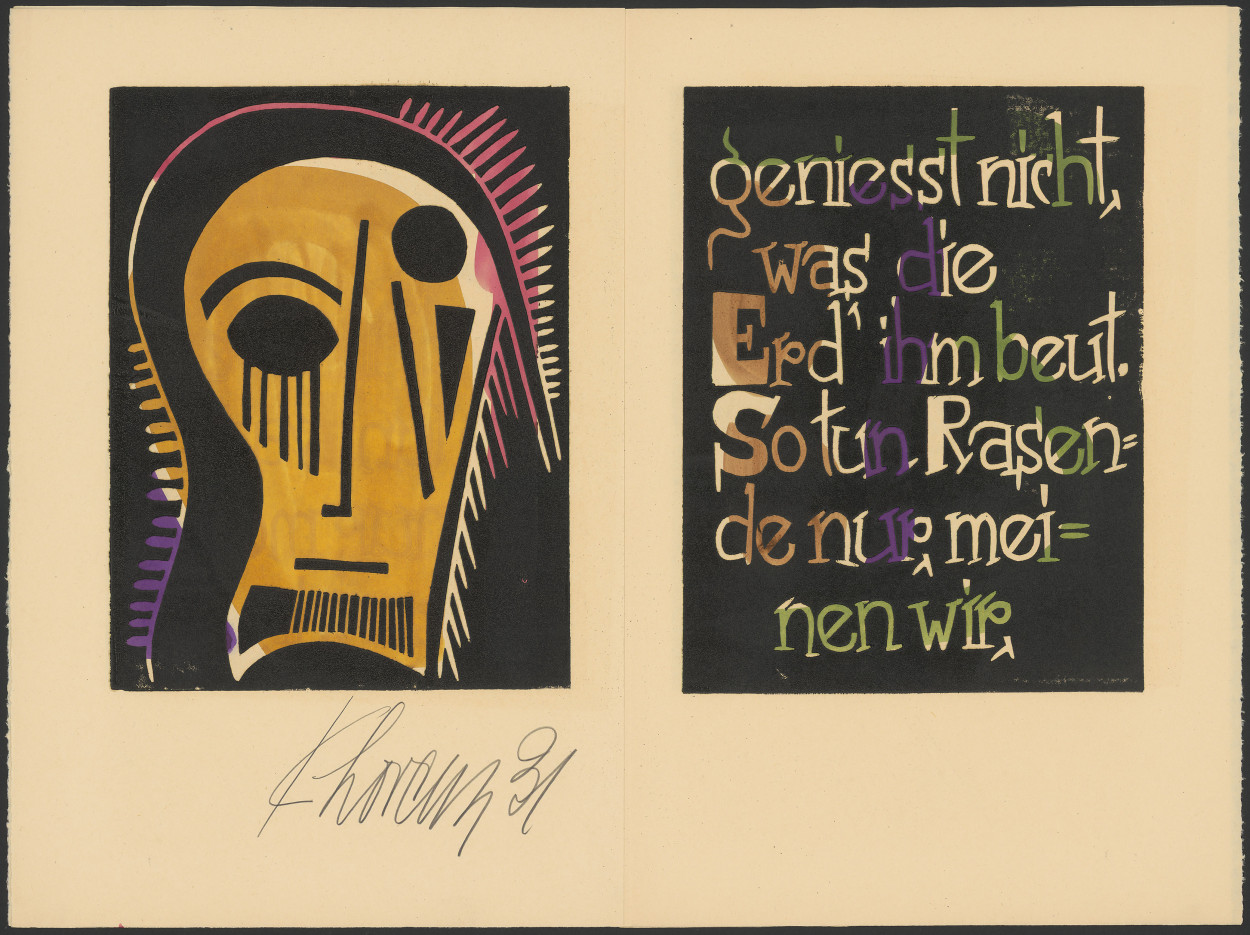 KLorenz 31
geniesst nicht,
was die
Erd' ihm beut.
So tun Rasen=
de nur, mei=
nen wir,